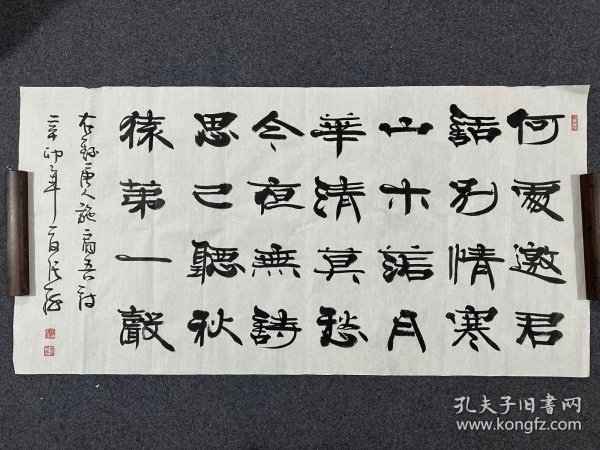 何處邀君
話別情寒
山木落月
華清莫愁
今夜無詩
思已聽秋
猿第一聲
右錄唐人施肩吾詩
辛卯年
孔夫子旧書网
www.kongfz.com